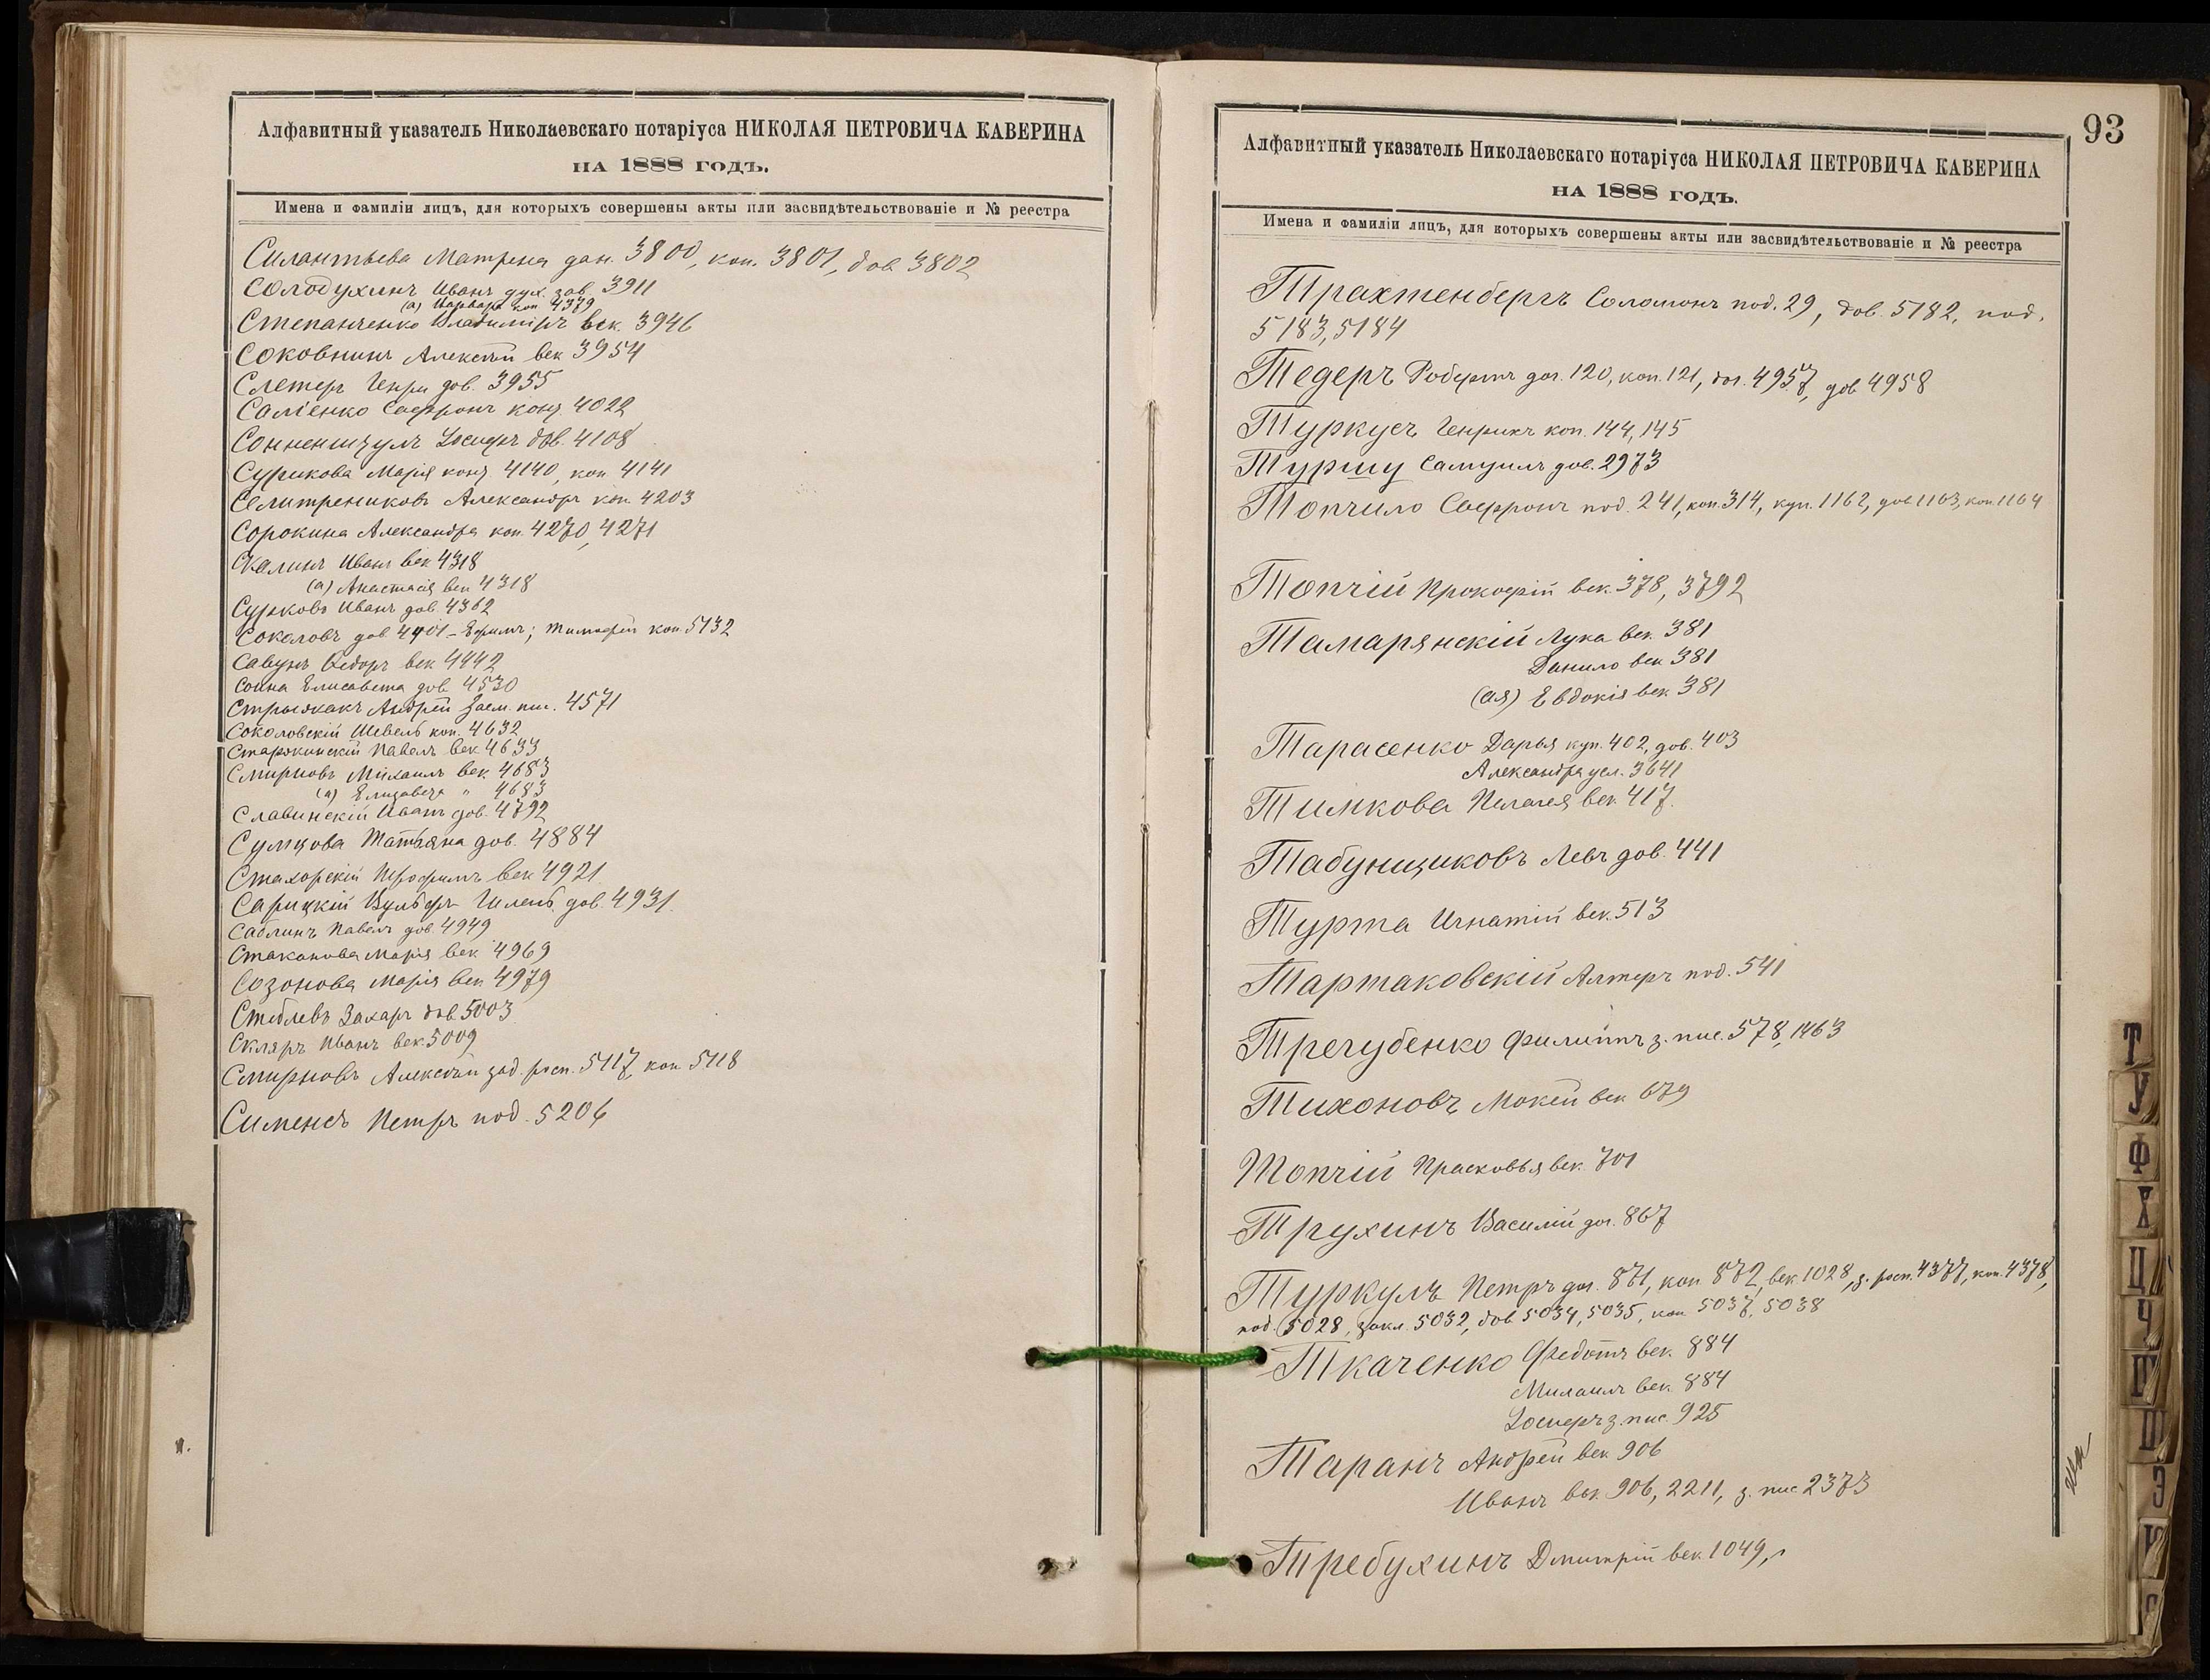 Алфавитный указатель Николаевскаго нотаріуса НИКОЛАЯ ПЕТРОВИЧА КАВЕРИНА
НА 1888 ГОДЪ.
Имена и фамиліи лицъ, для которыхъ совершены акты или засвидѣтельствованіе и № реестра
Силантьева Матрена дан. 3800, коп. 3801, дов 3802
Солодухинъ Иванъ дух. зав. 3911
(а) Варвара коп 4379
Степанченко Владиміръ век. 3946
Соковнинъ Алексѣй век 3954
Слетеръ Генри дов. 3955
Саліенко Софронъ 4022
Сонненшулъ Іосифъ дов. 4108
Сурикова Марія 4140, коп 4141
Селитрениковъ Александръ коп. 4203
Сорокина Александра коп. 4270, 4271
Скалинъ Иванъ век 4318
(а) Анастасія век 4318
Сурковъ Иванъ дов. 4362
Соколовъ дов 4401 - Ефимъ; Тимофей коп. 5132
Савунъ Ѳедоръ век 4442
Соина Елисавета дов 4530
Андрей заем. пис. 4571
Соколовскій Шевель коп. 4632
Старжинскій Павелъ век 4633
Смирновъ Михаилъ век. 4683
(а) Елизавета " 4683
Славинскій Иванъ дов. 4792
Сумцова Татьяна дов. 4884
Стахорскій Трофимъ век 4921
Сарицкій Вульфъ-Гилель дов. 4931
Саблинъ Павелъ дов. 4949
Стаканова Марія век 4969
Созонова Марія век 4979
Стеблевъ Захаръ дов 5003
Скляръ Иванъ век. 5009
Смирновъ Алексѣй зад. росп. 5117, коп 5118
Сименсъ Петръ под. 5206
п.
93
Алфавитный указатель Николаевскаго нотаріуса НИКОЛАЯ ПЕТРОВИЧА КАВЕРИНА
НА 1888 ГОДЪ.
Имена и фамиліи лицъ, для которыхъ совершены акты или засвидѣтельствованіе и № реестра
Трахтенбергъ Соломонъ под. 29, дов. 5182, под.
5183, 5184
Тедеръ Робертъ дог. 120, коп. 121, дог. 4957, дов 4958
Туркусъ Генрихъ коп. 144, 145
Туршу Самуилъ дов. 2973
Топчило Софронъ под. 241, коп. 314, куп. 1162, дов 1163, коп. 1164
Топчій Прокофій век. 378, 3792
Тамарянскій Лука век. 381
Данило век 381
(ая) Евдокія век 381
Тарасенко Дарья куп. 402, дов. 403
Александра усл. 3641
Тимкова Пелагея век. 417.
Табунщиковъ Левъ дов. 441
Турта Игнатій век. 513
Тартаковскій Алтеръ под. 541
Трегубенко Филиппъ з. пис. 578, 1463
Тихоновъ Мокей век 679
Топчій Прасковья век. 701
Трухинъ Василій дог. 867
Туркулъ Петръ дог. 871, коп 872, век. 1028, з. росп. 4377, коп. 4378,
под. 5028, закл. 5032, дов 5034, 5035, коп 5037, 5038
Ткаченко Федотъ век. 884
Михаилъ век 884
Іосифъ з. пис. 925
Таранъ Андрей век 906
Иванъ век. 906, 2211, з. пис 2373
Требухинъ Дмитрій век. 1049,
Т
У
Ф
Х
Ц
Ч
Ш
Э